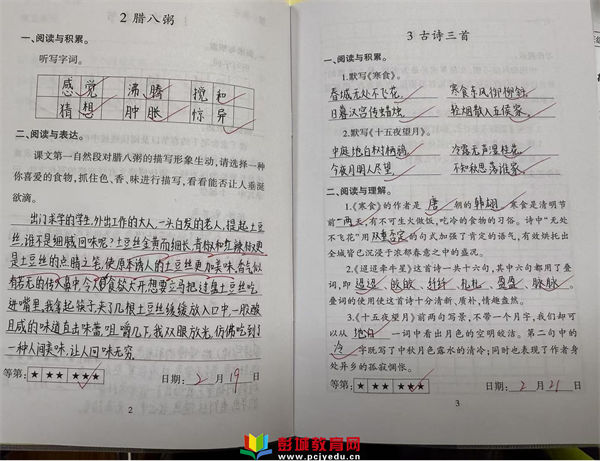 2 腊八粥
一、阅读与积累。
听写字词。
感觉 沸腾 搅和
猜想 肿胀 惊异
二、阅读与表达。
课文第一自然段对腊八粥的描写形象生动,请选择一种
你喜爱的食物,抓住色、香、味进行描写,看看能否让人垂涎
欲滴。
出门求学的学生,外出工作的大人,一头白发的老人,提起土豆
丝,谁不是细腻回味呢?土豆金黄而细长,青椒和红辣椒更
是土豆丝的点睛之笔,使原本诱人的土豆丝更加美味,香气似
有若无的传入鼻中令人食欲大开想要立马把这盘土豆丝吃
进嘴里,我拿起筷子,夹了几根土豆丝缓缓放入口中,一股酸
且咸的味道直击味蕾,咀嚼几下,我双眼放光,仿佛吃到了
一种人间美味,让人回味无穷。
等第: ★ ★★ ★★★ 日期: 2 月 19 日
2
3 古诗三首
一、阅读与积累。
1.默写《寒食》。
春城无处不飞花, 寒食东风御柳斜。
日暮汉宫传蜡烛, 轻烟散入五侯家。
2.默写《十五夜望月》。
中庭地白树栖鸦, 冷露无声湿桂花。
今夜月明人尽望, 不知秋思落谁家。
二、阅读与理解。
1.《寒食》的作者是 唐 朝的 韩翃 。寒食是清明节
前一两天,有不可生火做饭,吃冷的食物的习俗。诗中“无处
不飞花”用 双重否定 的句式加强了肯定的语气,有效烘托出
全城皆已沉浸于浓郁春意之中的盎。
2.《迢迢牵牛星》这首诗一共十六句,其中六句都用了叠
词,即 迢迢 、 皎皎 、 纤纤 、 札札 、 盈盈 、 脉脉 。
叠词的使用使这首诗十分清新、质朴,情趣盎然。
3.《十五夜望月》前两句写景,不带一个月字,我们却可
以从 地白 一词中看出月色的空明皎洁。第二句中的
冷 字既写了中秋月色露水的清冷;同时也表现了作者身
处异乡的孤寂惆怅。
等第: ★ ★★ ★★★ 日期: 2 月 21 日
3
彭城教育网
www.pcjyedu.cn